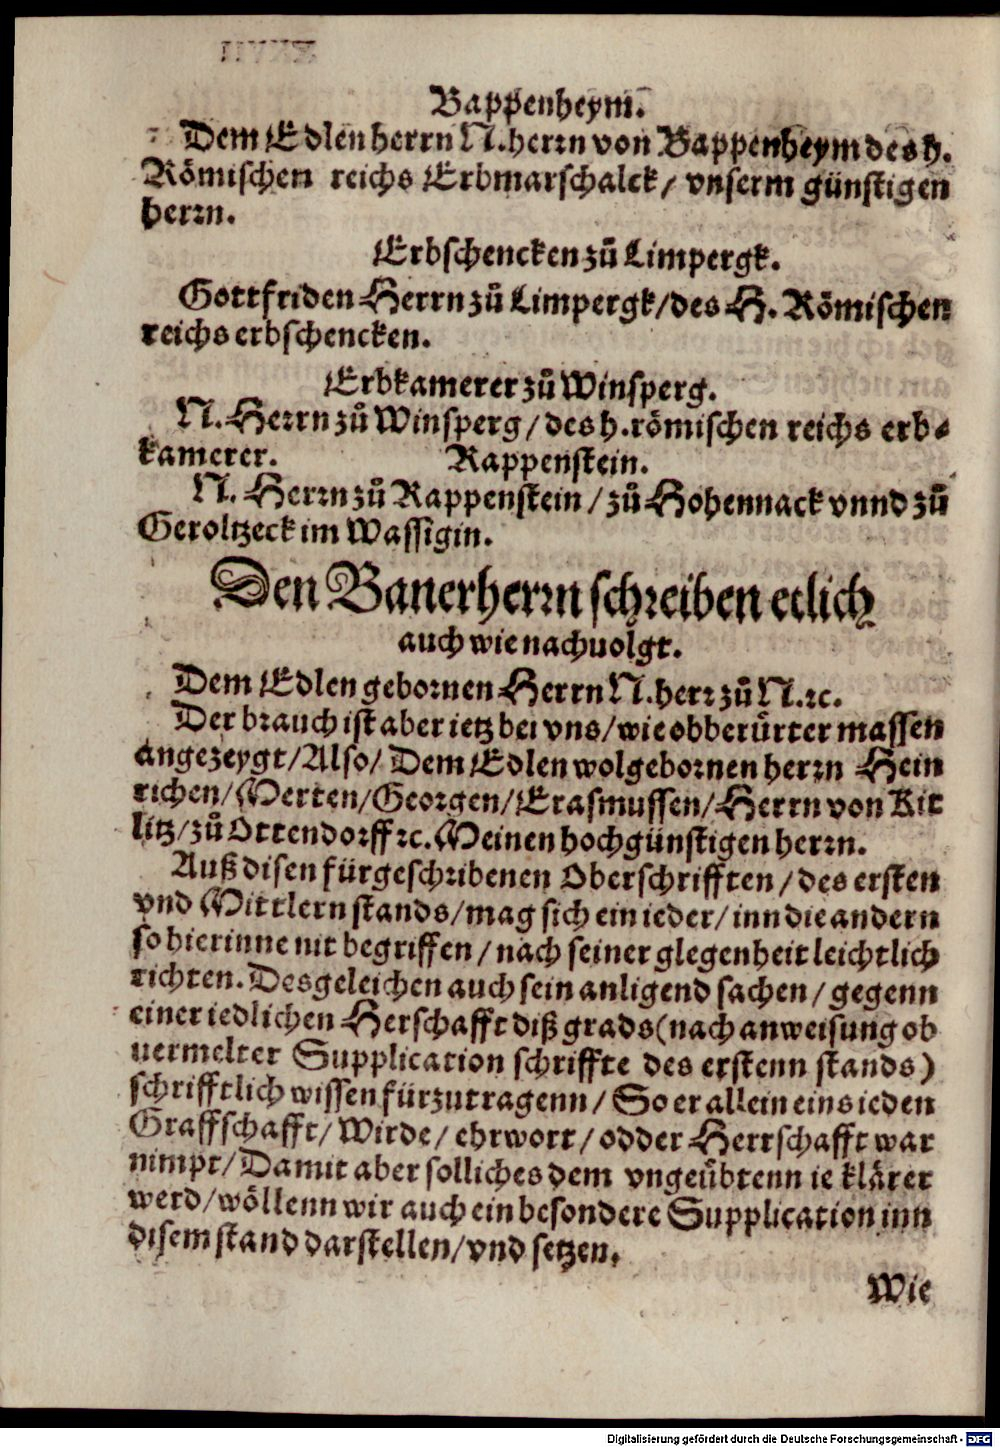 Bappenheym.
Dem Edlen herrn N. herrn von Bappenheym des h.
Römischen reichs Erbmarschalck / vnserm günstigen
herrn.
Erbschencken zů Limpergk.
Gottfriden Herrn zů Limpergk / des H. Römischen
reichs erbschencken.
Erbkamerer zů Winsperg.
N. Herrn zů Winsperg / des h. römischen reichs erb⸗
kamerer. Rappenstein.
N. Herrn zů Rappenstein / zů Hohennack vnnd zů
Geroltzeck im Wassigin.
Den Banerherrn schreiben etlich
auch wie nachuolgt.
Dem Edlen gebornen Herrn N. herr zů N. ꝛc.
Der brauch ist aber ietz bei vns / wie obberürter massen
angezeygt / Also / Dem Edlen wolgebornen herrn Hein
richen / Merten / Georgen / Erasmussen / Herrn von Kit
litz / zů Ottendorff ꝛc. Meinen hochgünstigen herrn.
Auß disen fürgeschribenen Oberschrifften / des ersten
vnd Mittlern stands / mag sich ein ieder / inn die andern
so hierinne nit begriffen / nach seiner glegenheit leichtlich
richten. Desgeleichen auch sein anligend sachen / gegenn
einer iedlichen Herschafft diß grads (nach anweisung ob
uermelter Supplication schriffte des erstenn stands)
schrifftlich wissen fürzutragenn / So er allein eins ieden
Graffschafft / Wirde / ehrwort / odder Herrschafft war
nimpt / Damit aber solliches dem vngeübtenn ie klärer
werd / wöllenn wir auch ein besondere Supplication inn
disem stand darstellen / vnd setzen.
Wie
Digitalisierung gefördert durch die Deutsche Forschungsgemeinschaft - DFG